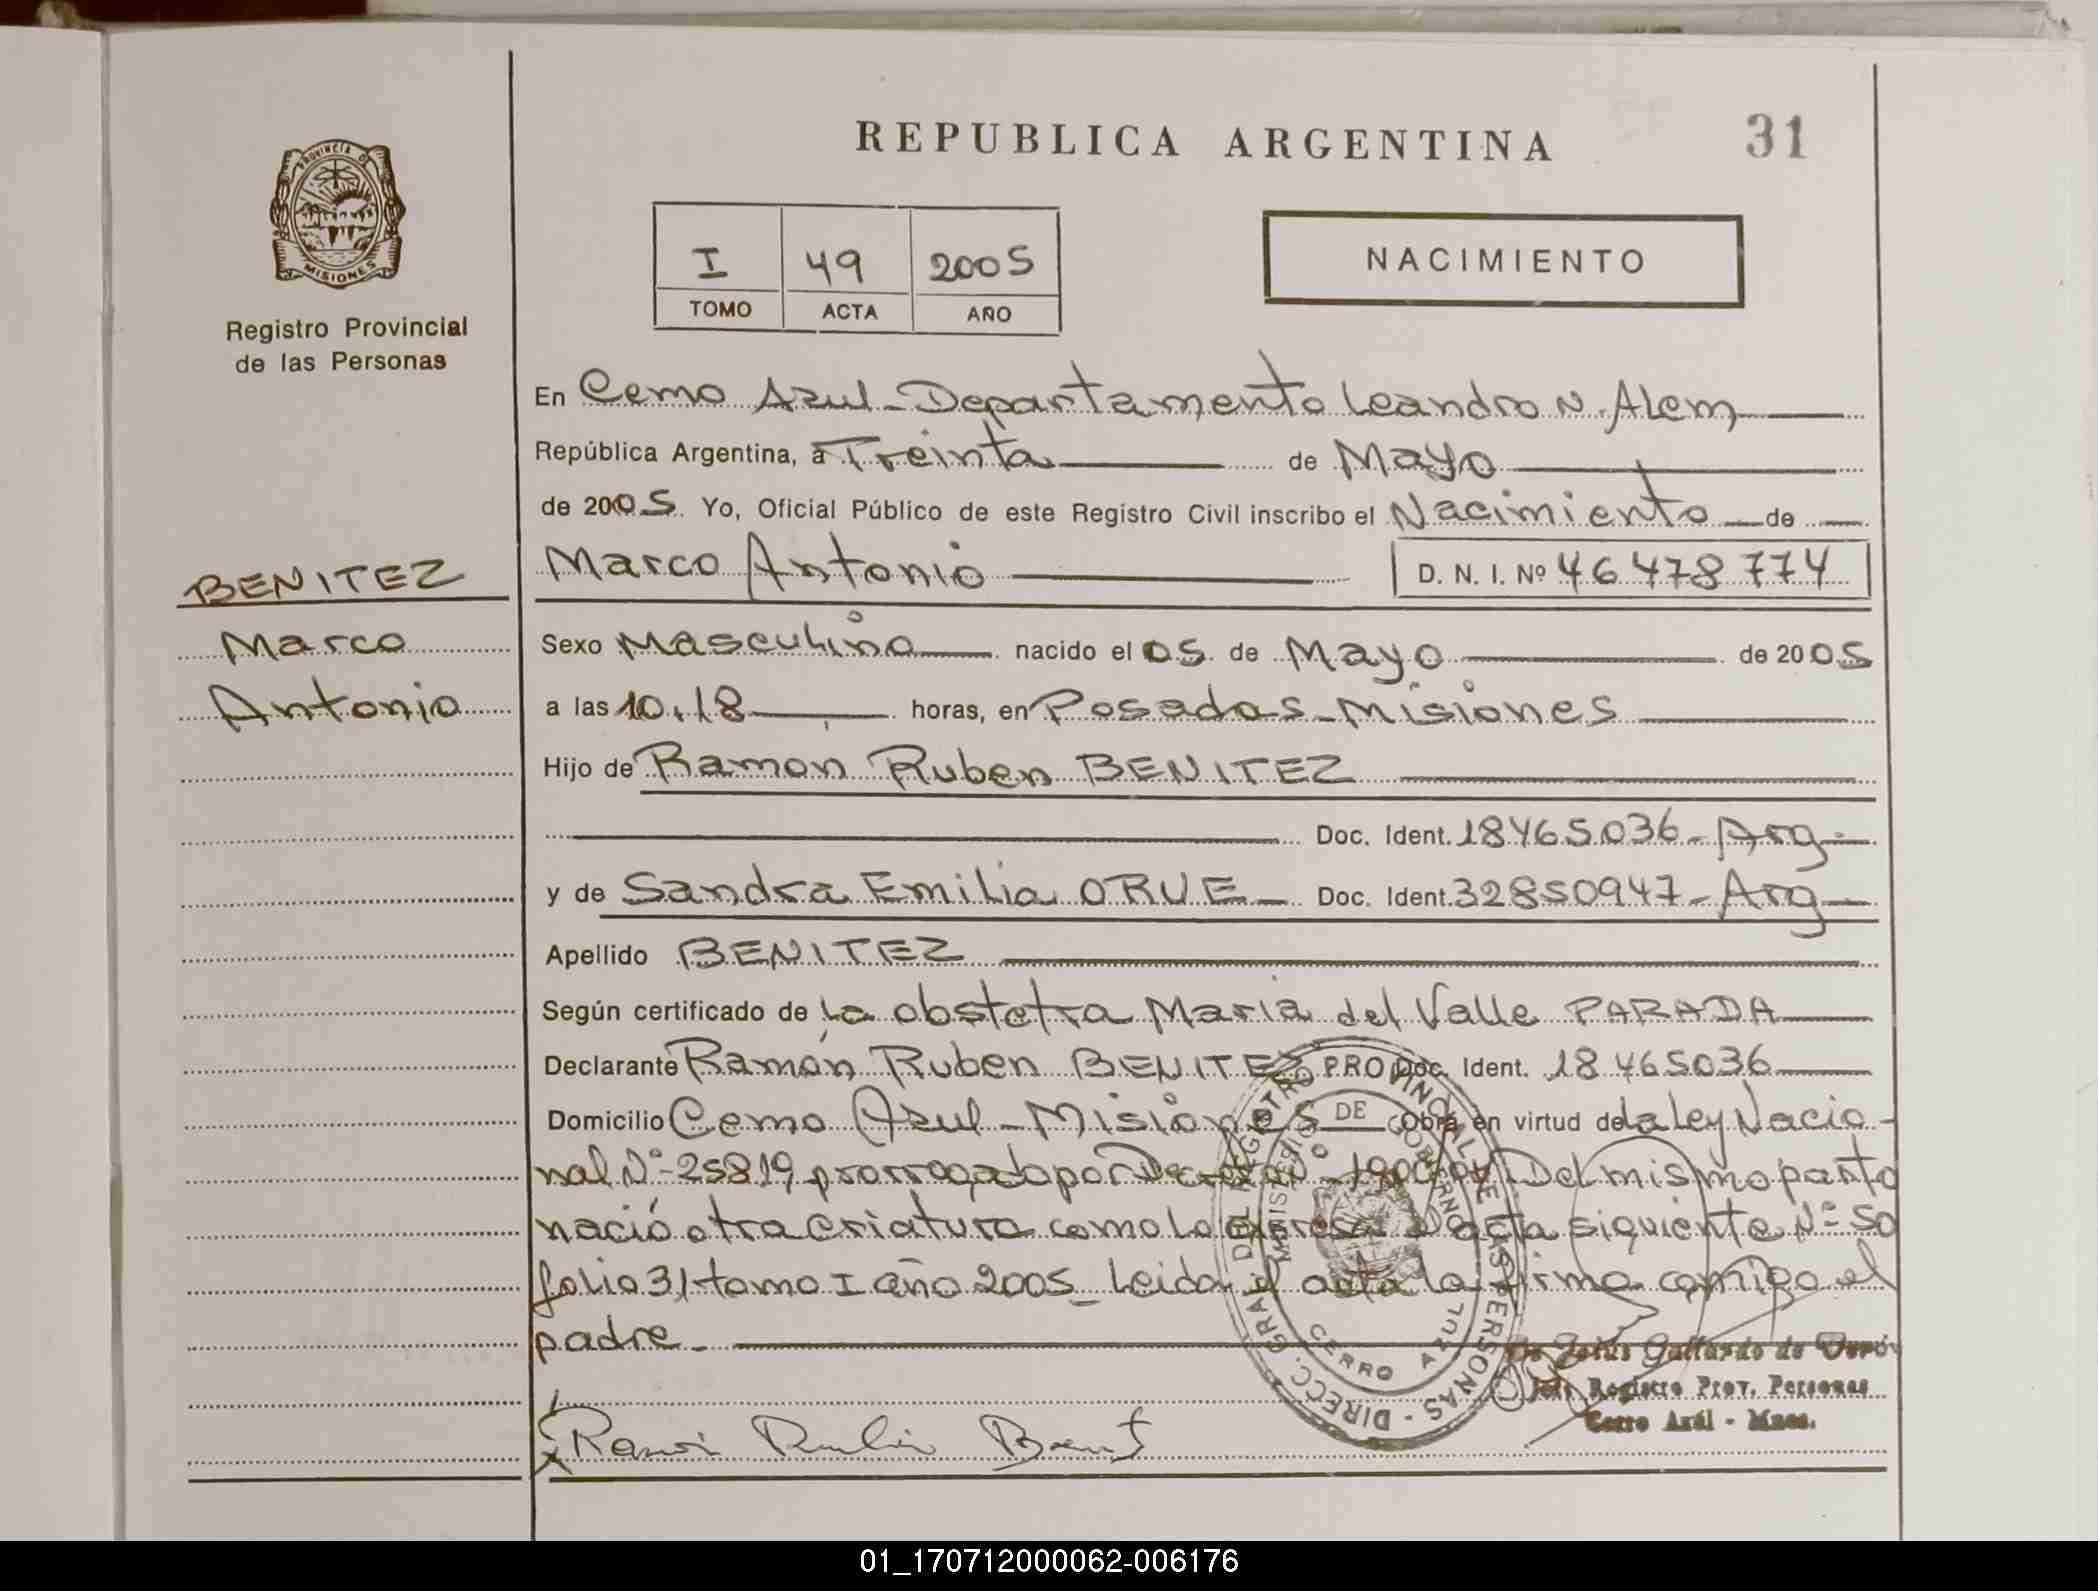 REPUBLICA ARGENTINA
31
PROVINCIA DE
MISIONES
Registro Provincial
de las Personas
I 49 2005
TOMO ACTA AÑO
NACIMIENTO
En Cerro Azul - Departamento Leandro N. Alem
República Argentina, a Treinta de Mayo
de 2005 Yo, Oficial Público de este Registro Civil inscribo el Nacimiento de
BENITEZ
Marco Antonio
D. N. I. Nº 46478774
Marco
Sexo Masculino nacido el 05 de Mayo de 2005
Antonio
a las 10,18 horas, en Posadas - Misiones
Hijo de Ramón Ruben BENITEZ
Doc. Ident. 18465036 - Arg -
y de Sandra Emilia ORUE - Doc. Ident. 32850947 - Arg -
Apellido BENITEZ
Según certificado de la obstetra Maria del Valle PARADA
Declarante Ramón Ruben BENITEZ Doc. Ident. 18465036
Domicilio Cerro Azul - Misiones Obra en virtud de la Ley Nacio-
nal Nº 25819 prorrogado por Decreto Nº Del mismo parto
nació otra criatura como lo expresa el acta siguiente Nº 50
folio 31 tomo I año 2005 - Leida el acta la firma conmigo el
padre -
DIRECC. GRAL. DEL REGISTRO PROVINCIAL DE LAS PERSONAS
MINISTERIO DE GOBIERNO
CERRO AZUL
Gallardo de
Jefe Registro Prov. Personas
Cerro Azúl - Mnes.
01_170712000062-006176